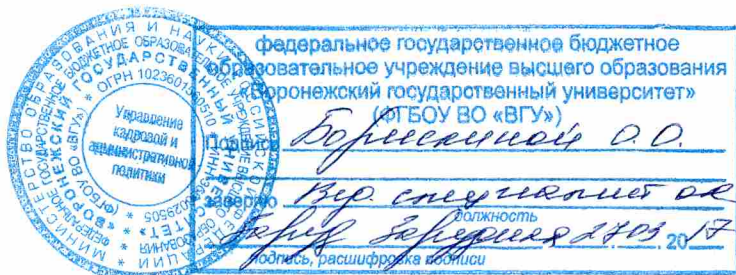 федеральное государственное бюджетное
образовательное учреждение высшего образования
«Воронежский государственный университет»
(ФГБОУ ВО «ВГУ»)
Подпись Борискиной О.О.
заверяю Вед. специалист ок
должность
27.03. 2017
подпись, расшифровка подписи
МИНИСТЕРСТВО ОБРАЗОВАНИЯ И НАУКИ РОССИЙСКОЙ ФЕДЕРАЦИИ
ОГРН
«ВОРОНЕЖСКИЙ ГОСУДАРСТВЕННЫЙ УНИВЕРСИТЕТ»
(ФГБОУ ВО «ВГУ»)
Управление
кадровой и
административной
политики